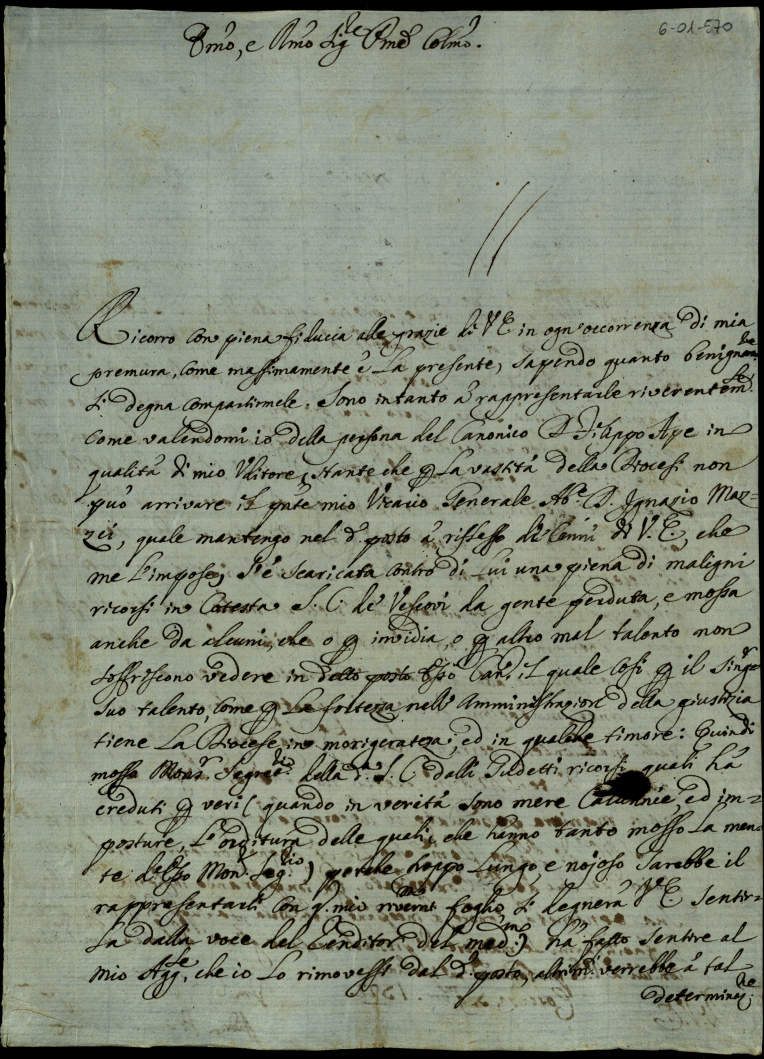 6-01-570
Emo, e Rmo Sig.re Pnre Colmo.
Ricorro con piena fiducia alle grazie di V E in ogn'occorrenza di mia
premura, come massimamente è la presente, sapendo quanto benignam.te
si degna compartirmele. Sono intanto à rappresentarle riverentem.te
come valendomi io della persona del Canonico D. Filippo Aye in
qualità di mio Uditore, stante che p la vastità della Diocesi non
può arrivare il pnte mio Vicario Generale Ab.e D. Ignazio Maz=
zei, quale mantengo nel d.o posto à riflesso di Cenni di V. E., che
me l'impose, s'è scaricata contro di lui una piena di maligni
ricorsi in Cotesta S. C. de' Vescovi da gente perduta, e mossa
anche da alcuni, che o p invidia, o p altro mal talento non
soffriscono vedere in detto posto Esso Can.o il quale così p il sing.r
suo talento, come p la fortezza nell'Amministrazione della giustizia
tiene la Diocese in morigeratezza, ed in qualche timore: Quindi
mosso Mons.r Segret.rio della d.a S. C. dalli sudetti ricorsi quali hà
creduti p veri (quando in verità sono mere Calunnie, ed im=
posture, l'orditura delle quali, che hanno tanto mosso la men=
te d'Esso Mon.r Seg.rio) perche troppo lungo, e nojoso sarebbe il
rappresentarli con q.o mio rivernt.mo foglio si degnerà V E sentir=
la dalla voce del Lenditor del med.mo) hà fatto sentire al
mio Agg.te, che io lo rimovessi dal d.o posto, altrim.ti verrebbe à tal
determinaz.ne